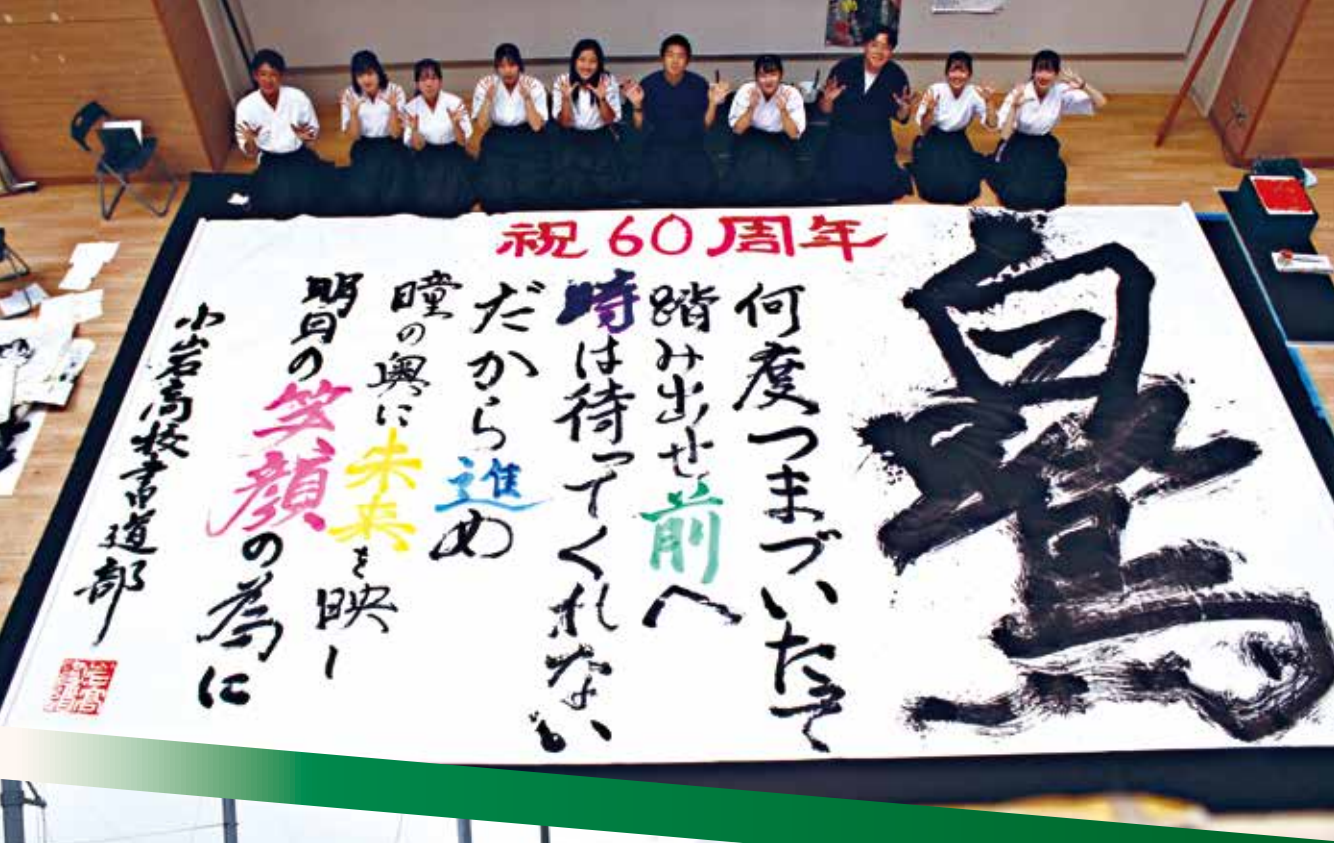 祝60周年
白鷺
何度つまづいたって
踏み出せ前へ
時は待ってくれない
だから進め
瞳の奥に未来を映し
明日の笑顔の為に
小岩高校書道部